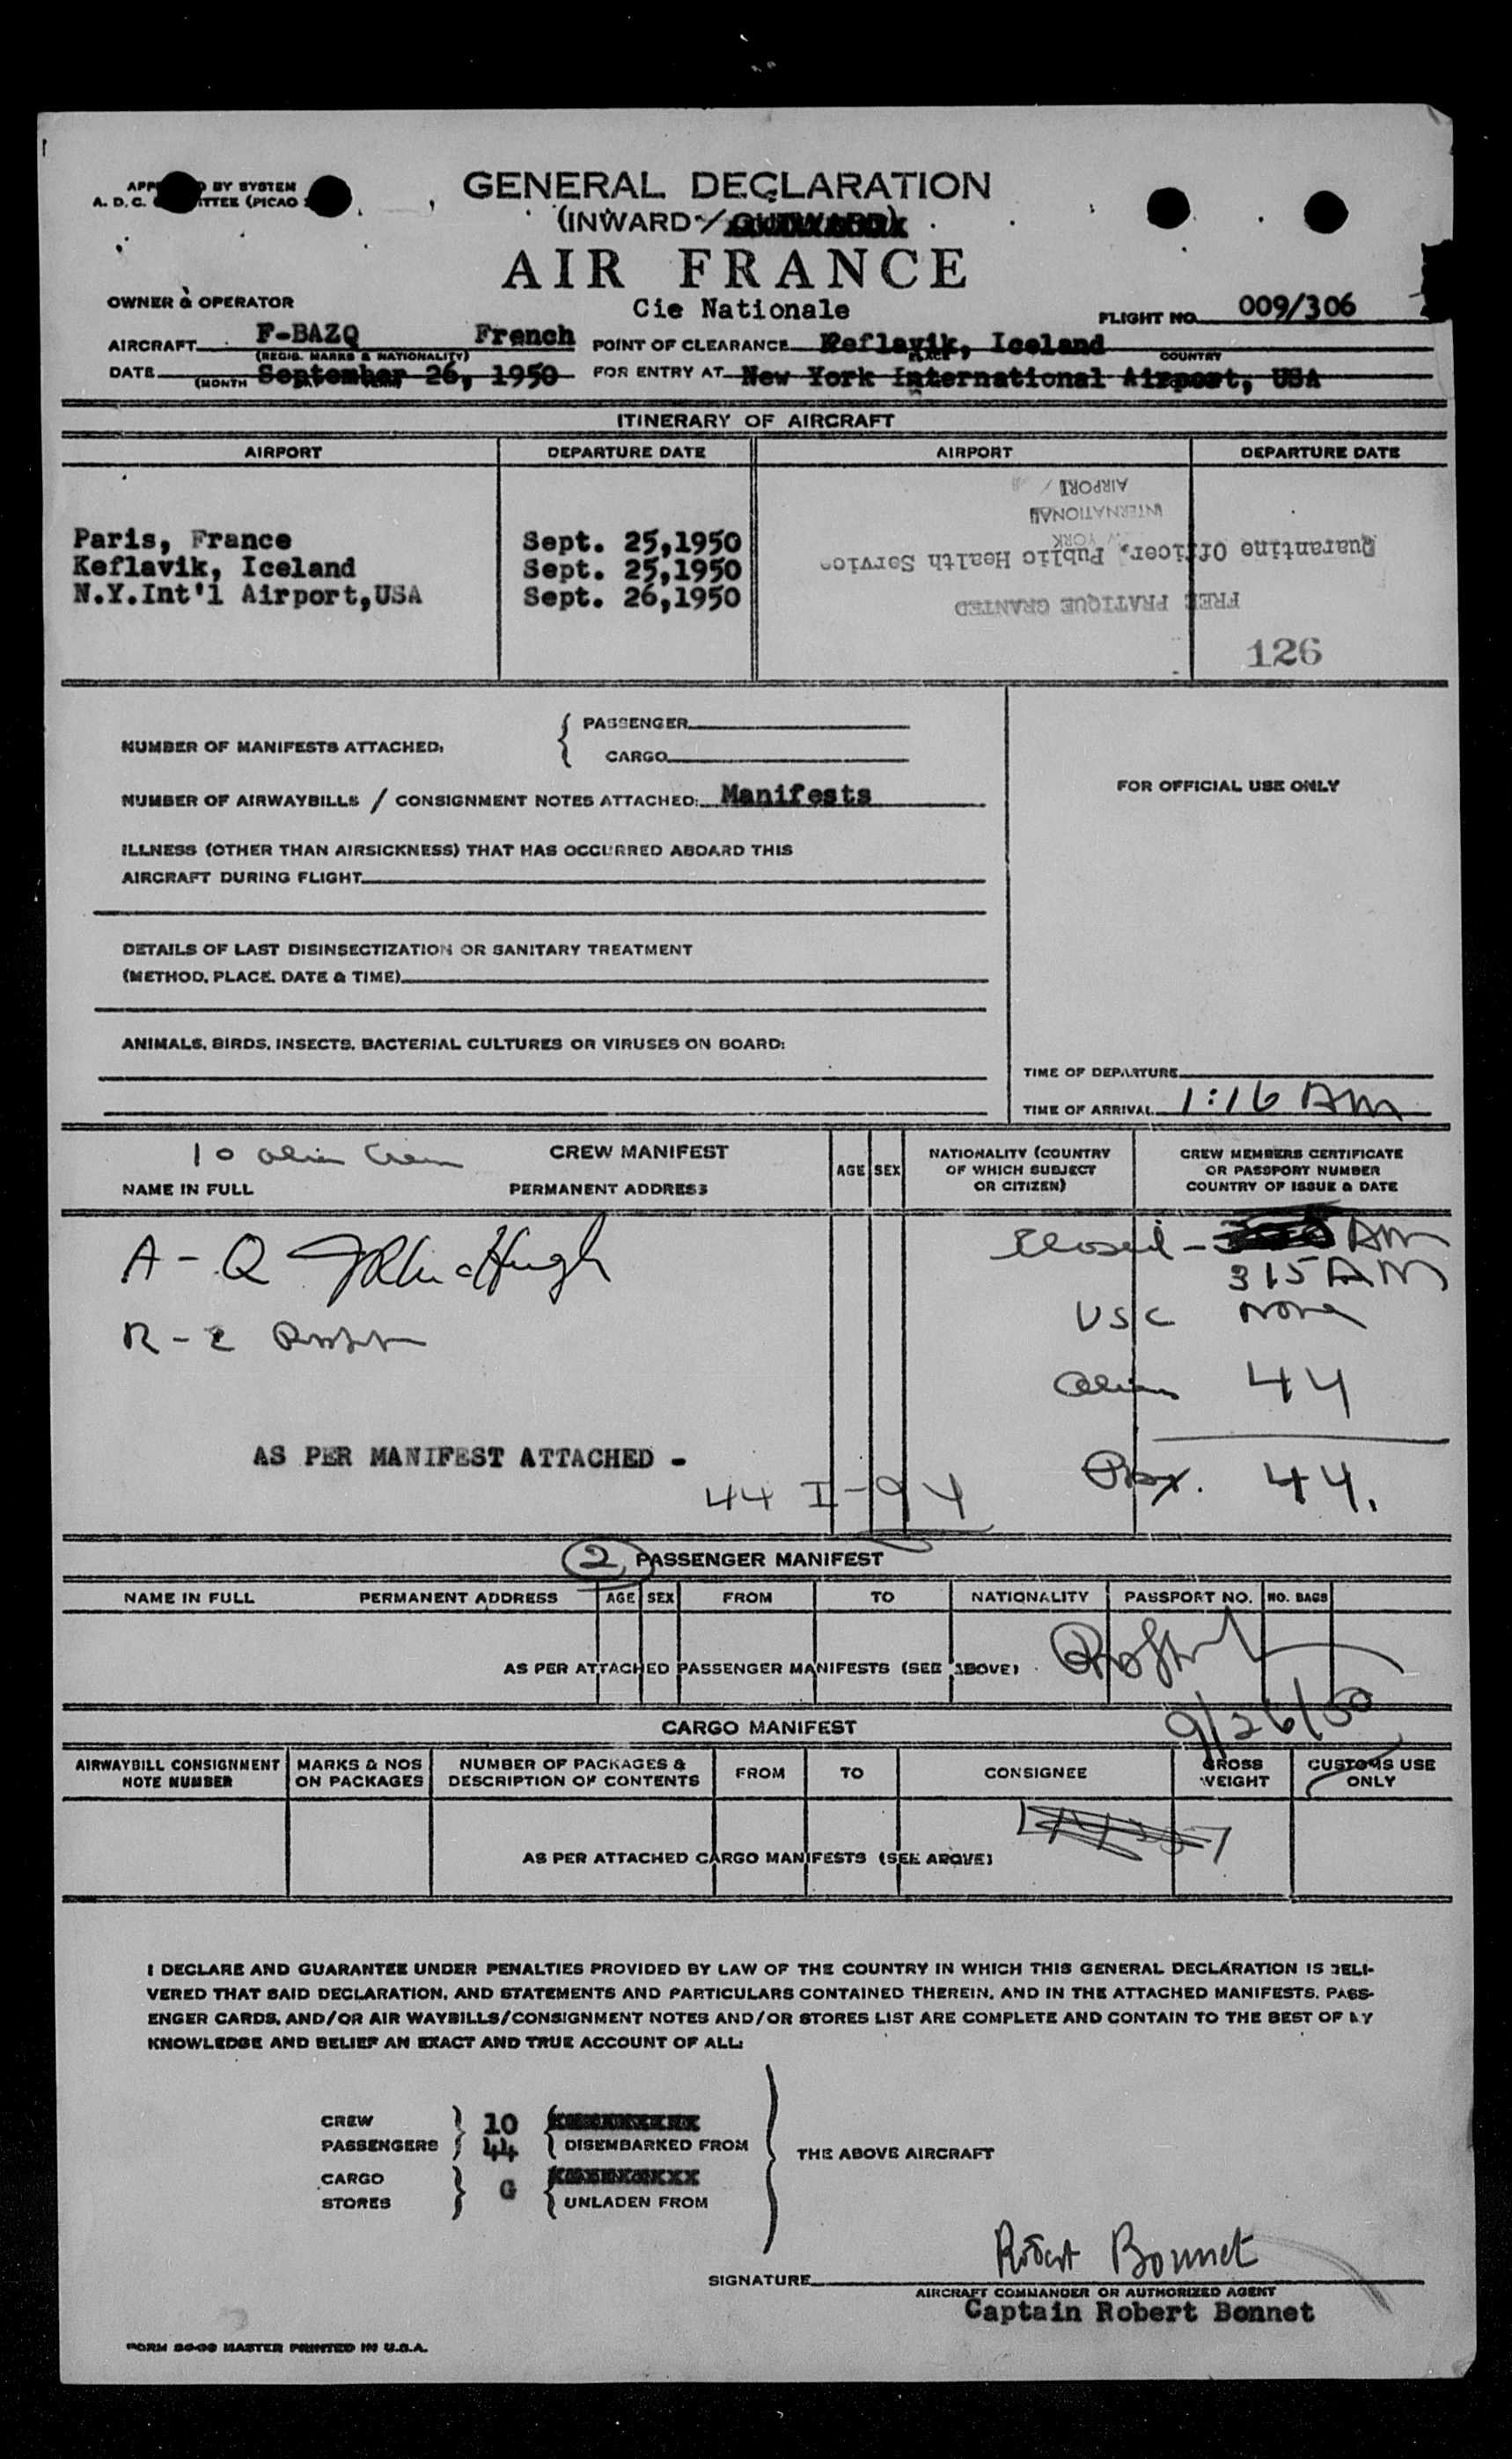 GENERAL DECLARATION
(INWARD /
AIR FRANCE
Cie Nationale
BY SYSTEM
A. D. C. (PICAO
OWNER & OPERATOR
FLIGHT NO. 009/306
AIRCRAFT F-BAZQ French POINT OF CLEARANCE Keflavik, Iceland
(REGIS. MARKS & NATIONALITY) PLACE COUNTRY
DATE (MONTH September 26, 1950 FOR ENTRY AT New York International Airport, USA
ITINERARY OF AIRCRAFT
AIRPORT DEPARTURE DATE AIRPORT DEPARTURE DATE
Paris, France Sept. 25,1950
Keflavik, Iceland Sept. 25,1950
N.Y.Int'l Airport,USA Sept. 26,1950
FREE PRATIQUE GRANTED
Quarantine Officer, Public Health Service
YORK
INTERNATIONAL
AIRPORT
126
NUMBER OF MANIFESTS ATTACHED: { PASSENGER
CARGO
NUMBER OF AIRWAYBILLS / CONSIGNMENT NOTES ATTACHED: Manifests
ILLNESS (OTHER THAN AIRSICKNESS) THAT HAS OCCURRED ABOARD THIS
AIRCRAFT DURING FLIGHT
DETAILS OF LAST DISINSECTIZATION OR SANITARY TREATMENT
(METHOD, PLACE, DATE & TIME)
ANIMALS, BIRDS, INSECTS, BACTERIAL CULTURES OR VIRUSES ON BOARD:
FOR OFFICIAL USE ONLY
TIME OF DEPARTURE
TIME OF ARRIVAL 1:16 AM
10 alien Crew CREW MANIFEST
NAME IN FULL PERMANENT ADDRESS
AGE SEX
NATIONALITY (COUNTRY
OF WHICH SUBJECT
OR CITIZEN)
CREW MEMBERS CERTIFICATE
OR PASSPORT NUMBER
COUNTRY OF ISSUE & DATE
A - Q
Closed - AM
315 AM
R - 2
USC None
Alien 44
AS PER MANIFEST ATTACHED -
44 I-94
Psx. 44.
2 PASSENGER MANIFEST
NAME IN FULL PERMANENT ADDRESS AGE SEX FROM TO NATIONALITY PASSPORT NO. NO. BAGS
AS PER ATTACHED PASSENGER MANIFESTS (SEE ABOVE)
9/26/50
CARGO MANIFEST
AIRWAYBILL CONSIGNMENT
NOTE NUMBER
MARKS & NOS
ON PACKAGES
NUMBER OF PACKAGES &
DESCRIPTION OF CONTENTS
FROM TO CONSIGNEE
GROSS
WEIGHT
CUSTOMS USE
ONLY
AS PER ATTACHED CARGO MANIFESTS (SEE ABOVE)
I DECLARE AND GUARANTEE UNDER PENALTIES PROVIDED BY LAW OF THE COUNTRY IN WHICH THIS GENERAL DECLARATION IS DELI-
VERED THAT SAID DECLARATION, AND STATEMENTS AND PARTICULARS CONTAINED THEREIN, AND IN THE ATTACHED MANIFESTS, PASS-
ENGER CARDS, AND/OR AIR WAYBILLS/CONSIGNMENT NOTES AND/OR STORES LIST ARE COMPLETE AND CONTAIN TO THE BEST OF MY
KNOWLEDGE AND BELIEF AN EXACT AND TRUE ACCOUNT OF ALL:
CREW } 10
PASSENGERS } 44 { DISEMBARKED FROM
THE ABOVE AIRCRAFT
CARGO } G
STORES { UNLADEN FROM
SIGNATURE Robert Bonnet
AIRCRAFT COMMANDER OR AUTHORIZED AGENT
Captain Robert Bonnet
MASTER PRINTED IN U.S.A.